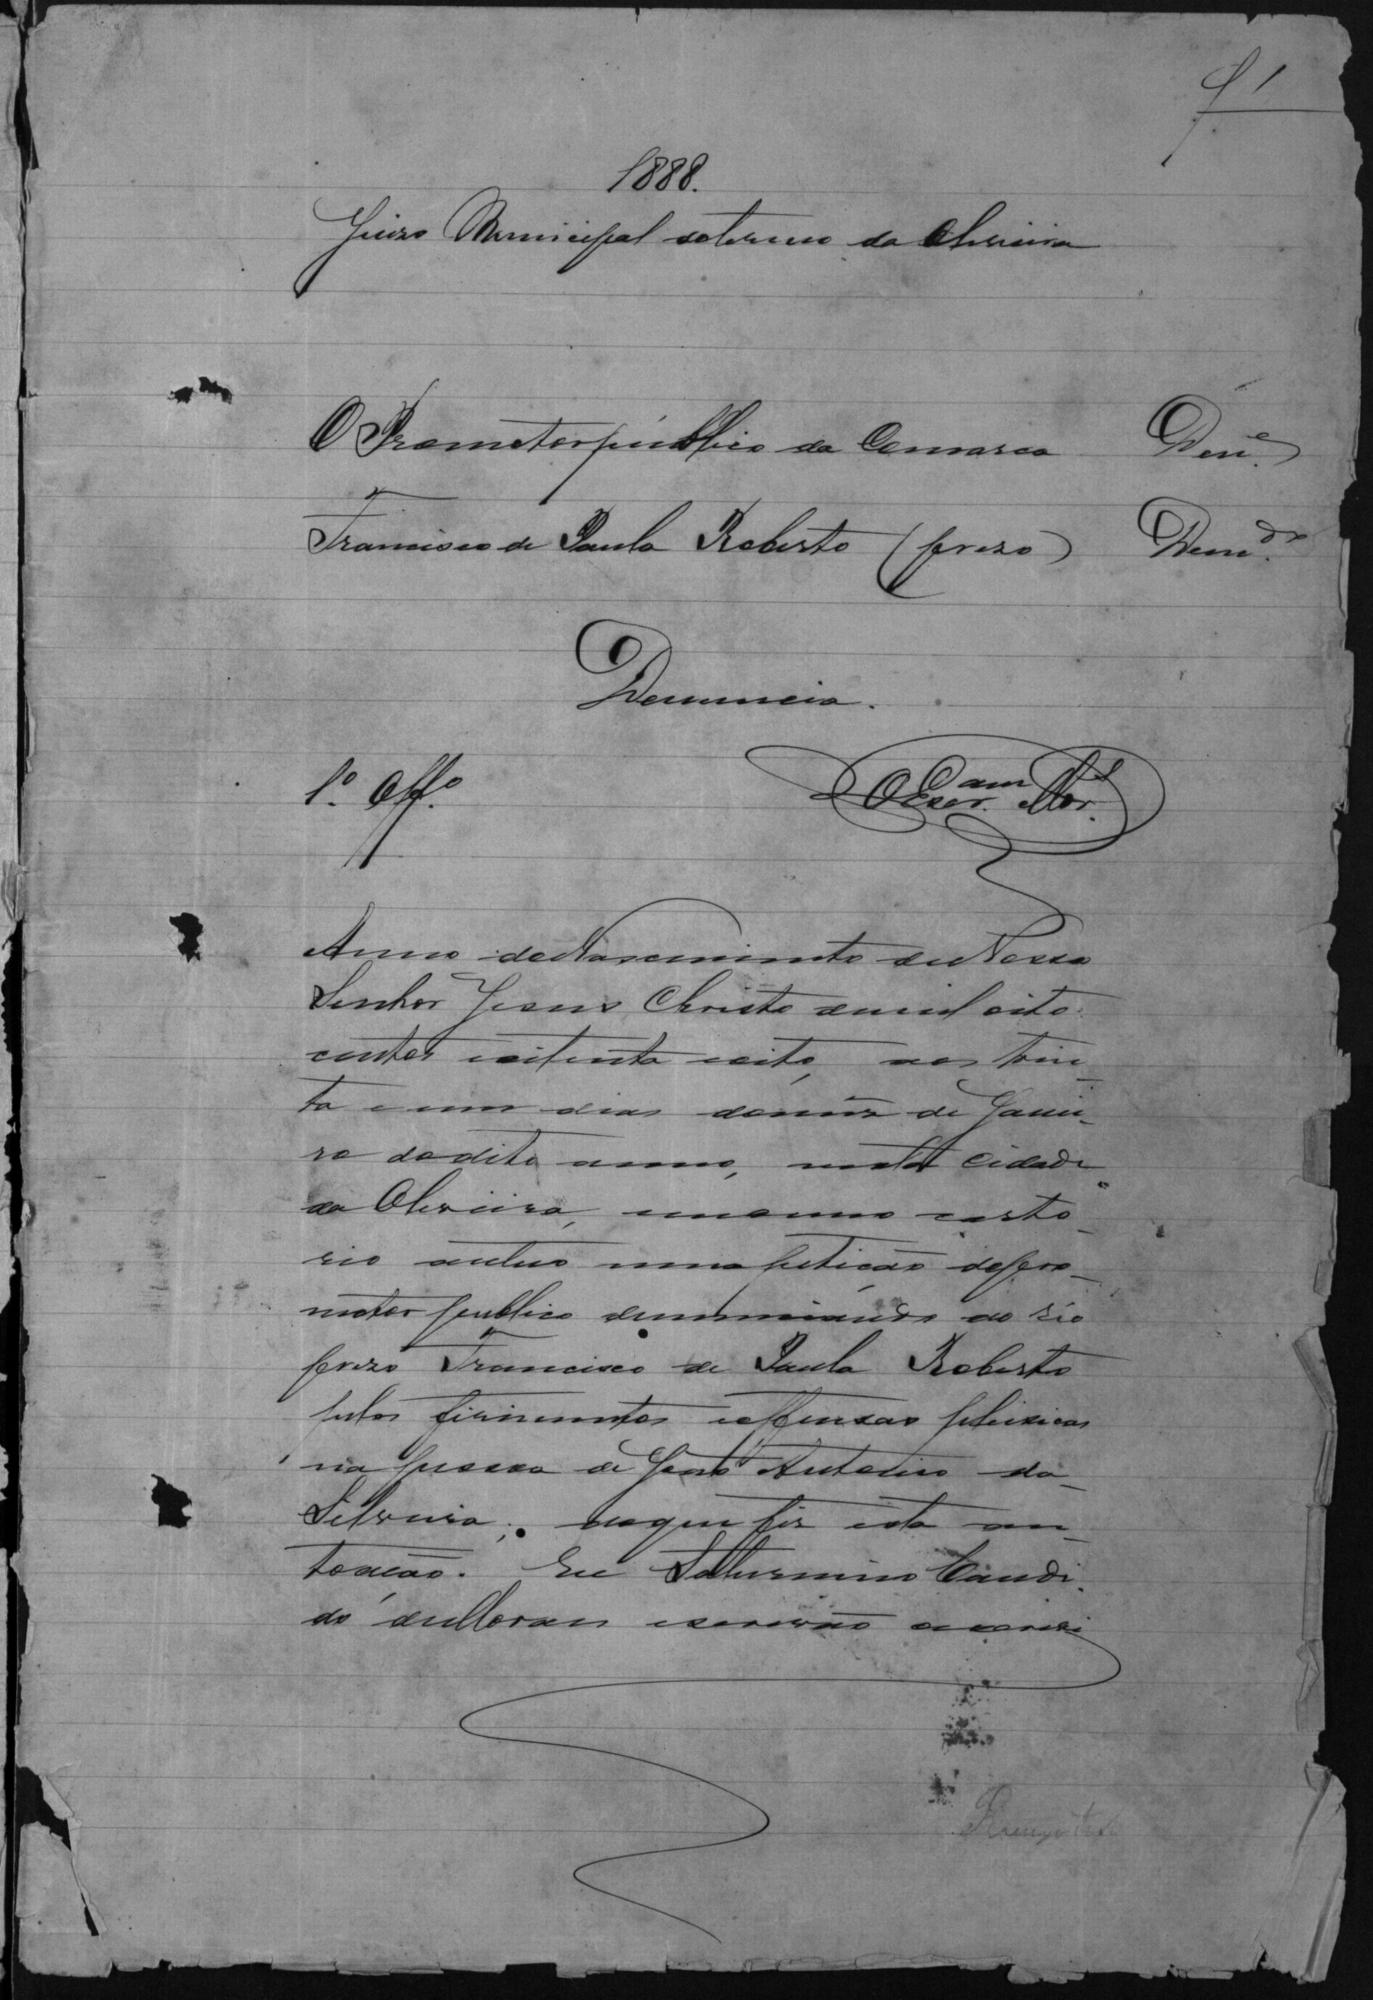 f 1
1888.
Juizo Municipal do termo da Oliveira
O Promotor publico da Comarca Den.e
Francisco de Paula Roberto (prezo) Denu.do
Denuncia.
1.º Off.º
O Escr.am Mor.s
Anno do Nascimento de Nosso
Senhor Jesus Christo de mil oito
centos e oitenta e oito, aos trin
ta e um dias do mez de Janei-
ro do dito anno, nesta cidade
da Oliveira, em o meu carto-
rio autuo uma petição do pro-
motor publico denunciando ao réo
prezo Francisco de Paula Roberto
pelos firimentos e offensas phisicas
na pessoa de José Antonio da
Silveira; do que fiz esta au-
toação. Eu Saturnino Candi-
do de Moraes escrivão o escrevi